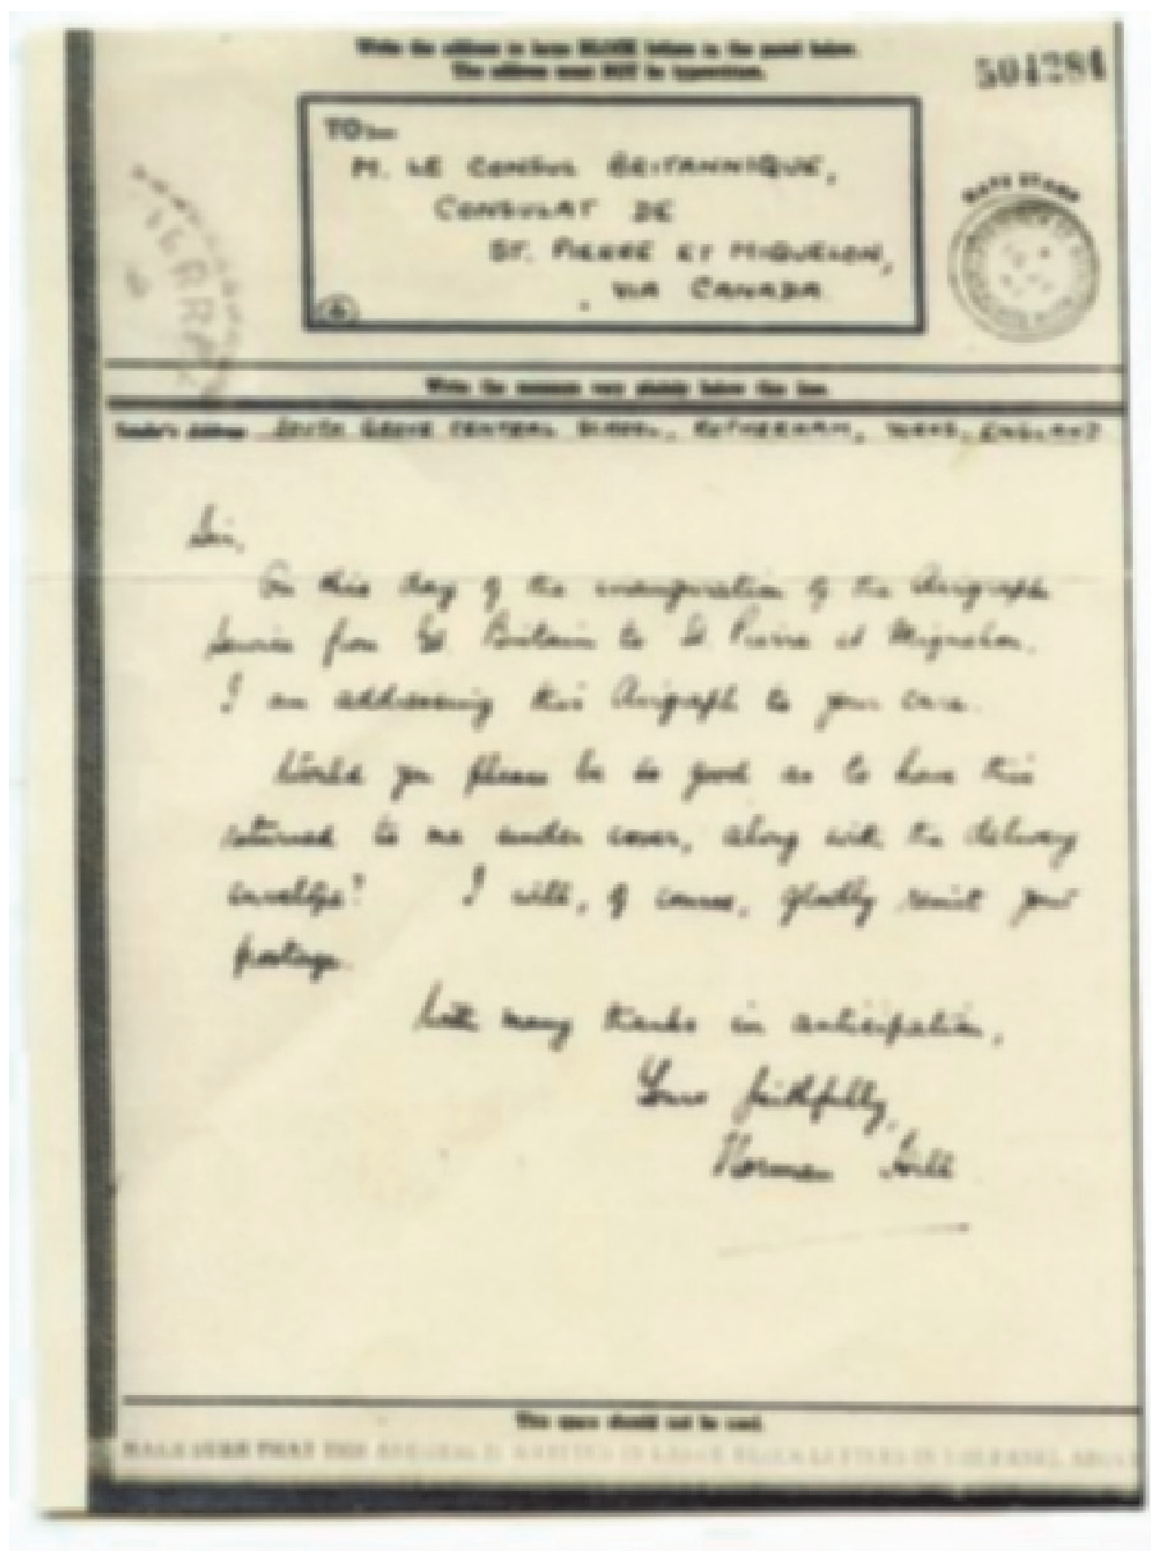 Write the address in large BLOCK letters in the panel below.
The address must NOT be typewritten.
501281
TO:—
M. LE CONSUL BRITANNIQUE,
CONSULAT DE
ST. PIERRE ET MIQUELON,
VIA CANADA.
DATE STAMP
Write the message very plainly below this line.
Sender's Address SOUTH GROVE CENTRAL SCHOOL, ROTHERHAM, YORKS, ENGLAND
Sir,
On this day of the inauguration of the Airgraph
Service from Gt. Britain to St. Pierre et Miquelon.
I am addressing this Airgraph to your care.
Would you please be so good as to have this
returned to me under cover, along with the delivery
envelope? I will, of course, gladly remit your
postage.
With many thanks in anticipation,
Yours faithfully,
Norman Hill
This space should not be used.
MAKE SURE THAT THE ADDRESS IS WRITTEN IN LARGE BLOCK LETTERS IN THE PANEL ABOVE